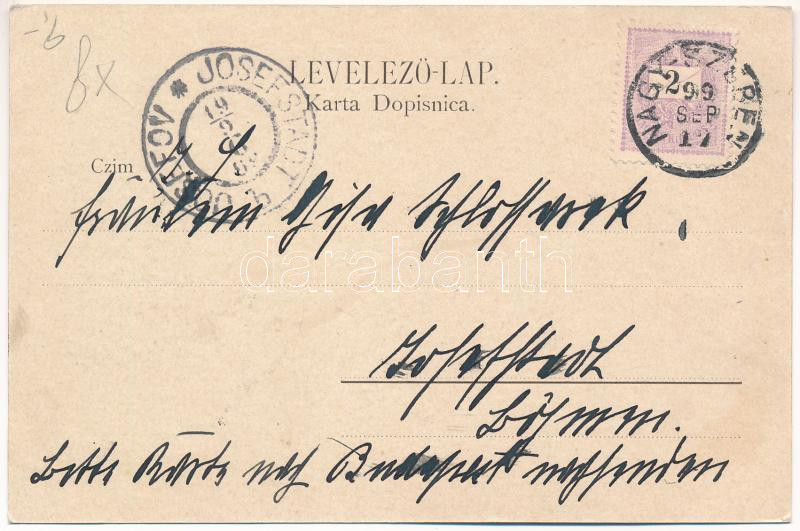 LEVELEZÖ-LAP.
Karta Dopisnica.
JOSEFSTADT JOSEFOV
19/9 99
NAGY-SZEBEN
99
SEP
17
2
Czim
Fräulein Gisa
Josefstadt
Böhmen.
Bitte Karte nach Budapest nachsenden
darabanth
8x